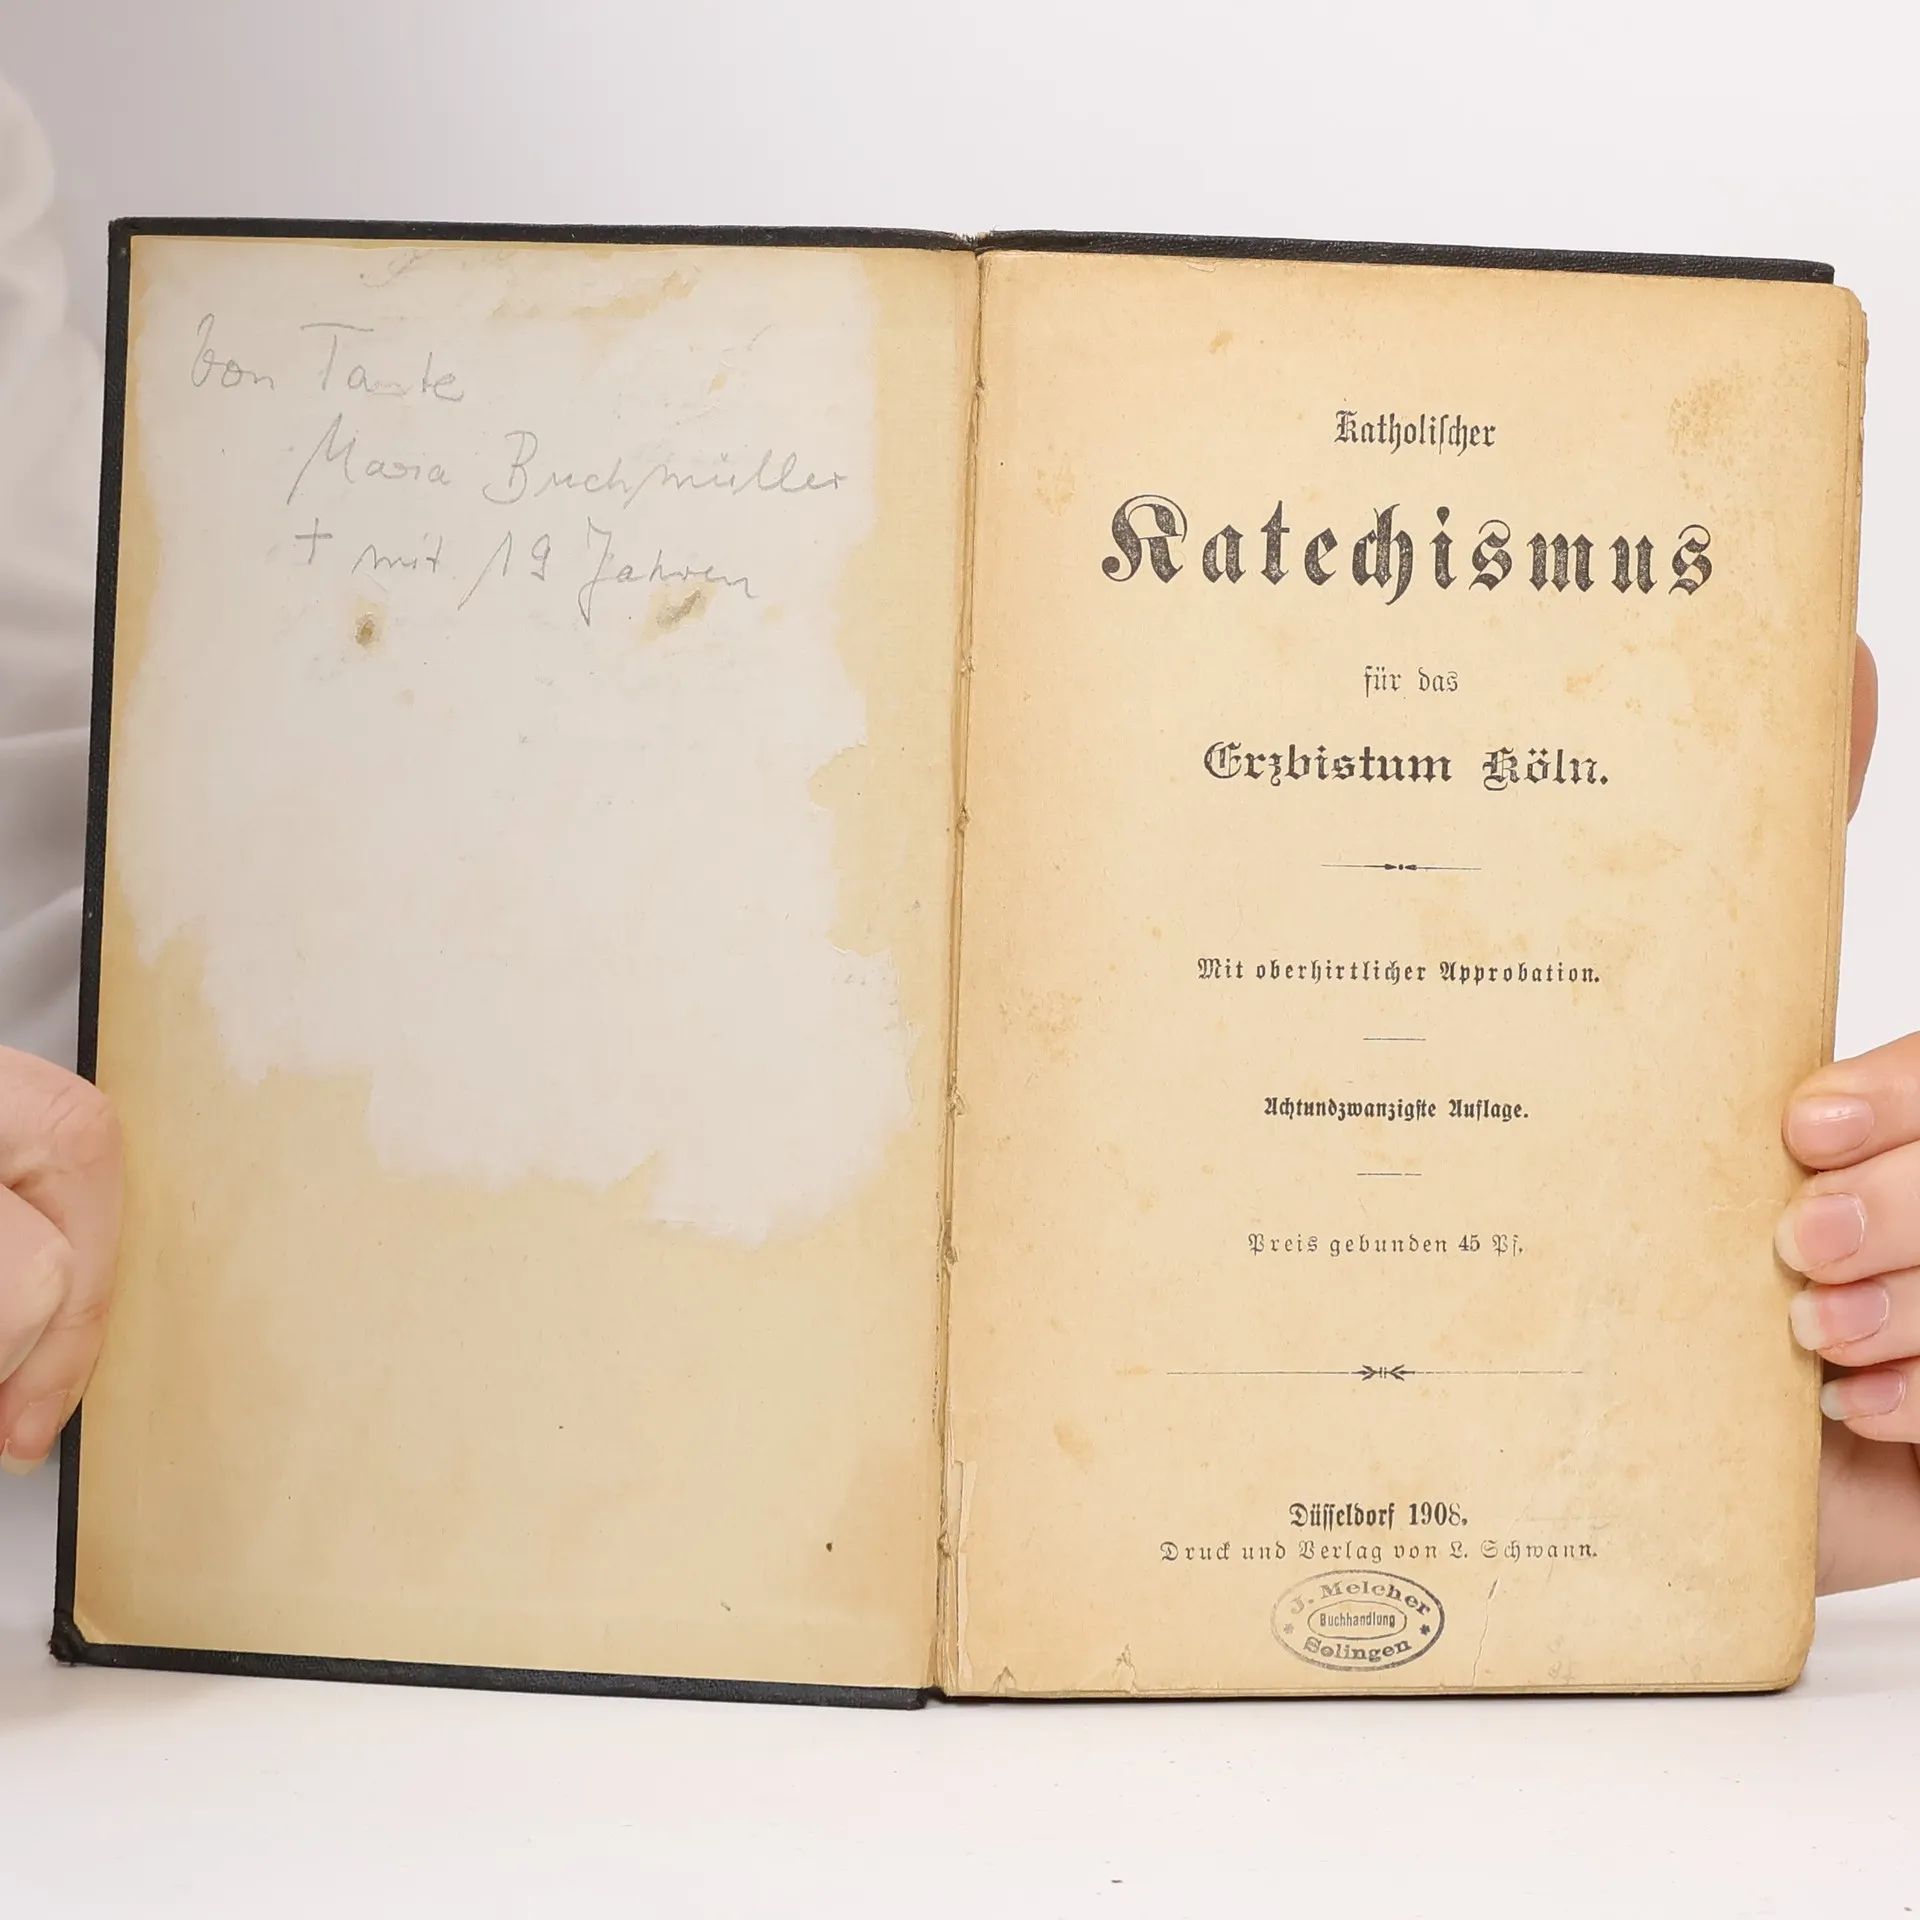 Von Tante
Maria Buchmüller
+ mit 19 Jahren
Katholischer
Katechismus
für das
Erzbistum Köln.
Mit oberhirtlicher Approbation.
Achtundzwanzigste Auflage.
Preis gebunden 45 Pf.
Düsseldorf 1908.
Druck und Verlag von L. Schwann.
J. Melcher
Buchhandlung
Solingen